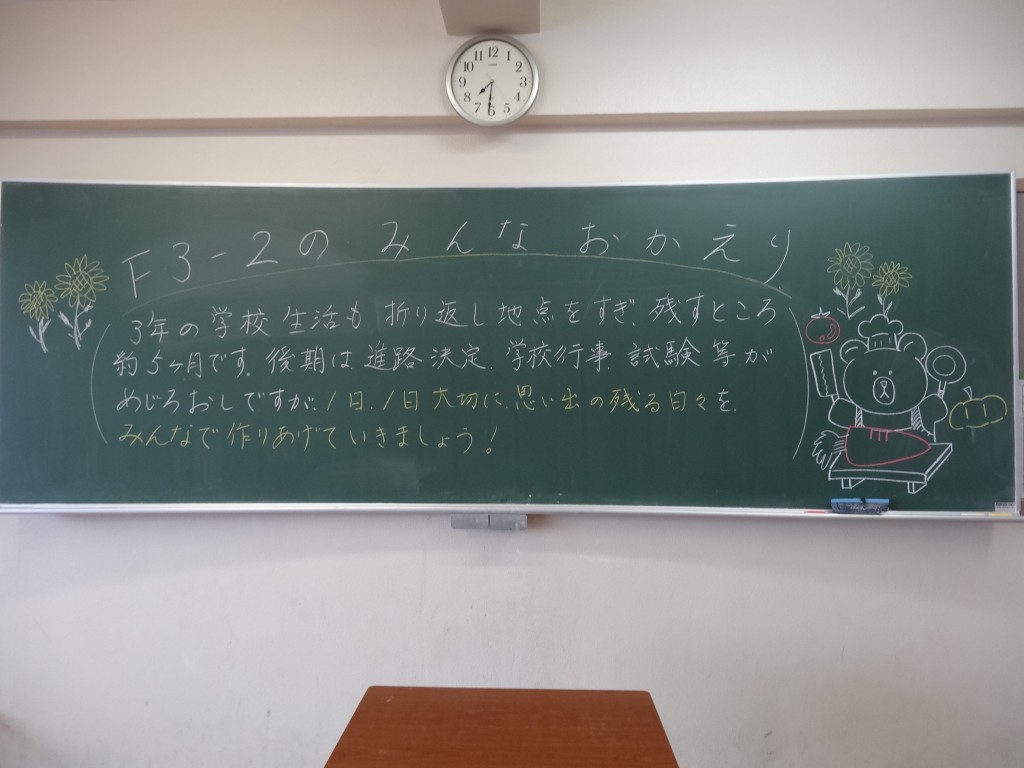 F3-2の みんな おかえり
3年の学校生活も折り返し地点をすぎ、残すところ
約5ヶ月です。後期は進路決定、学校行事、試験等が
めじろおしですが、1日、1日大切に、思い出の残る日々を、
みんなで作りあげていきましょう!
12
1
2
3
4
5
6
7
8
9
10
11